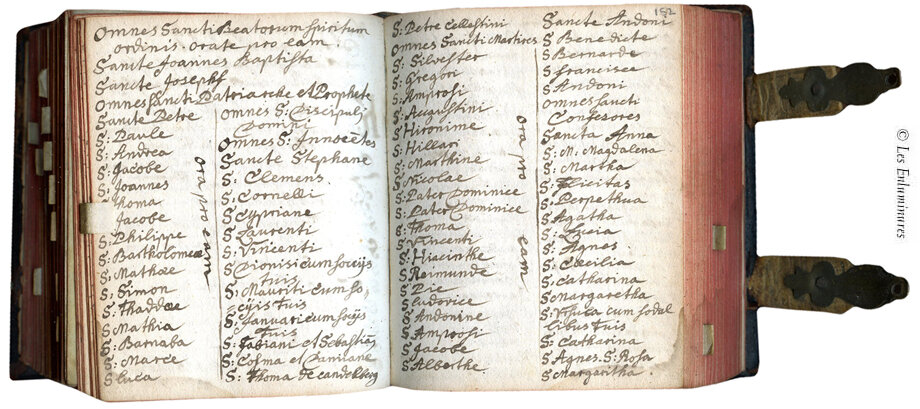 Omnes Sancti Beatorum Spiritum
ordinis. orate pro eam.
Sancte Joannes Baptista
Sancte Joseph
Omnes Sancti Patriarche et Prophete
Sancte Petre
S: Paule
S: Andrea
S: Jacobe
S: Joannes
S: Thoma
S: Jacobe
S: Philippe
S: Bartholomeæ
S: Mathæe
S: Simon
S: Thaddæe
S: Mathia
S: Barnaba
S: Marce
S: Luca
ora pro eam
omnes S: Discipuli
Domini
Omnes S: Innocētes
Sancte Stephane
S: Clemens.
S: Cornelli
S: Cypriane
S: Laurenti
S: Vincenti
S: Dionisi cum socijs
tuis
S: Mauriti cum so,
cijs tuis
S: Januari cum socijs
tuis
S: Fabiani et Sebastiani
S: Cosma et Damiane
S: Thoma de candelberg
S: Petre Cellestini
Omnes Sancti Martires
S: Silvester
S: Gregori
S: Amprosi
S: Augustini
S: Hironime
S: Hillari
S: Marthine
S: Nicolae
S: Pater Dominice
S: Pater Dominice
S: Thoma
S: Vincenti
S: Hiacinthe
S: Reimunde
S: Pie
S: Ludovice
S: Andonine
S: Amprosi
S: Jacobe
S: Alberthe
ora pro eam
182
Sancte Andoni
S Benedicte
S Bernarde
S Francisce
S Andoni
omnes sancti
Confesores
Sancta Anna
S: M: Magdalena
S: Martha
S: Felicitas
S: Perpethua
S: Agatha
S: Lucia
S: Agnes
S: Cæcilia
S: Catharina
S Margaretha
S: Vrsula cum sodal
libus tuis
S: Catharina
S: Agnes. S: Rosa
S Margaritha
© Les Enluminures